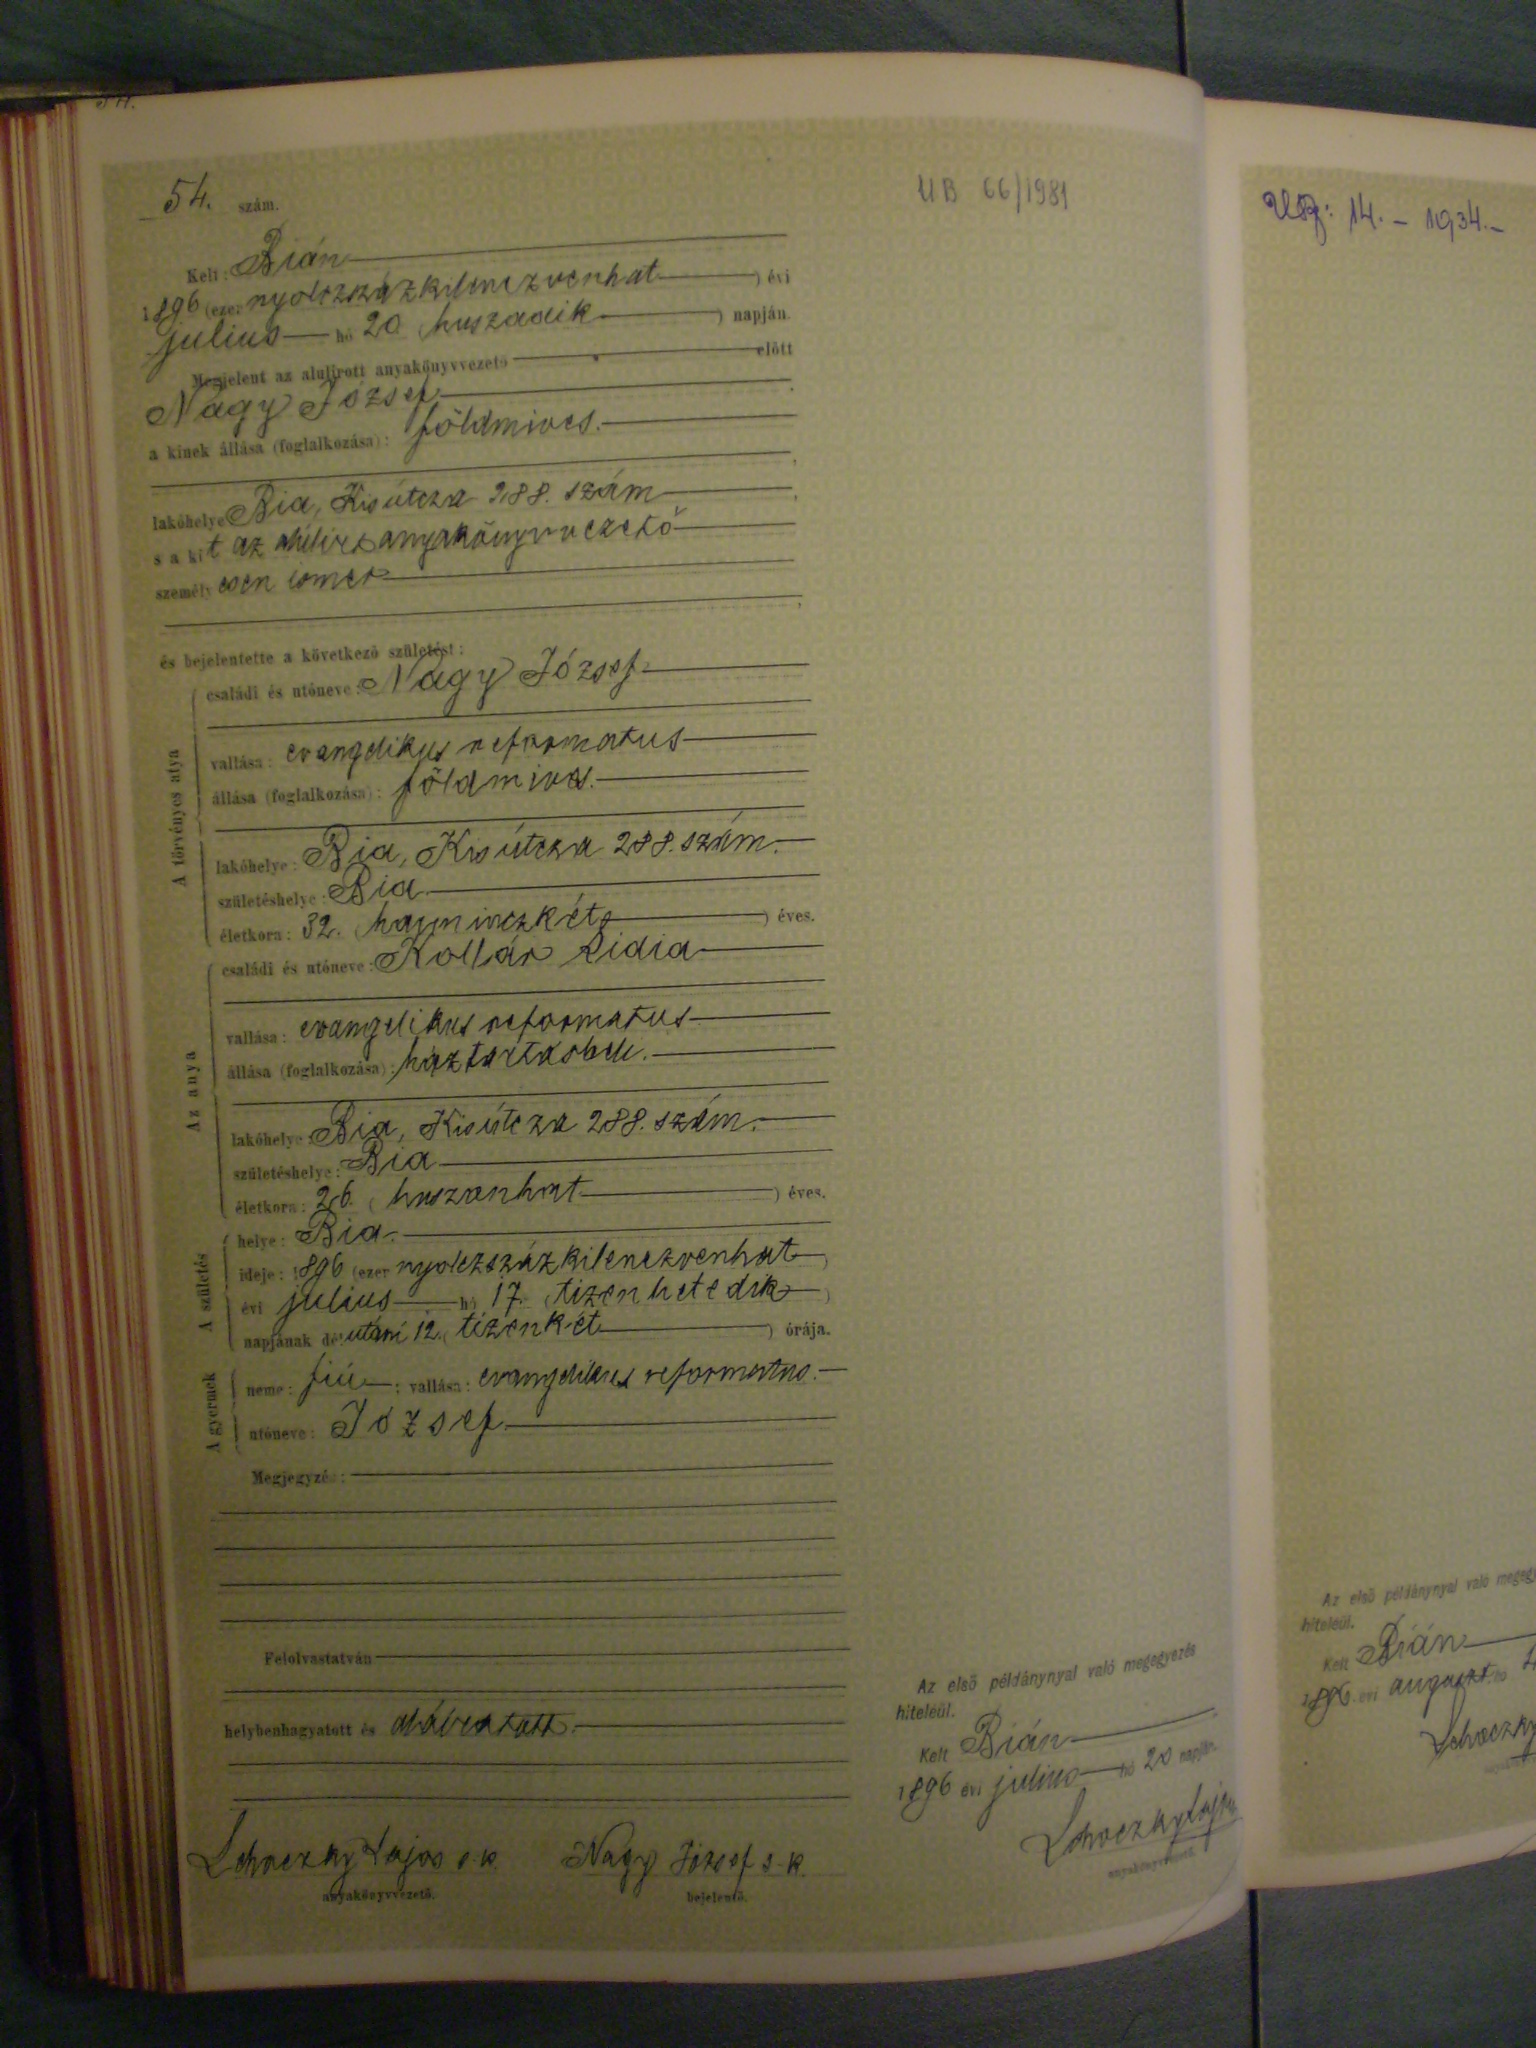 54. szám.
UB 66/1981
Kelt: Bián
1896 (ezer nyolczszázkilenczvenhat) évi
julius hó 20 (huszadik) napján.
Megjelent az alulirott anyakönyvvezető előtt
Nagy József
a kinek állása (foglalkozása): földmives.
lakóhelye Bia, Kisútcza 288. szám
s a kit az alulirt anyakönyvvezető
személyesen ismer
és bejelentette a következő születést:
A törvényes atya
családi és utóneve: Nagy József
vallása: evangelikus reformatus
állása (foglalkozása): földmives.
lakóhelye: Bia, Kisútcza 288. szám.
születéshelye: Bia
életkora: 32. (harminczkét) éves.
Az anya
családi és utóneve: Kollár Lidia
vallása: evangelikus reformatus
állása (foglalkozása): háztartásbeli.
lakóhelye: Bia, Kisútcza 288. szám.
születéshelye: Bia
életkora: 26. (huszonhat) éves.
A születés
helye: Bia.
ideje: 1896 (ezer nyolczszázkilenczvenhat)
évi julius hó 17. (tizenhetedik)
napjának délutáni 12. (tizenkét) órája.
A gyermek
neme: fiú; vallása: evangelikus reformatus.
utóneve: József
Megjegyzés:
Felolvastatván
helybenhagyatott és aláiratott.
Lehoczky Lajos s. k. Nagy József s. k.
anyakönyvvezető. bejelentő.
Az első példánynyal való megegyezés
hiteléül.
Kelt Bián
1896 évi julius hó 20 napján.
Lehoczky Lajos
anyakönyvvezető.
14. – 1934. –
Az első példánynyal való
hiteléül.
Kelt Bián
1896. évi auguszt. hó
Lehoczky